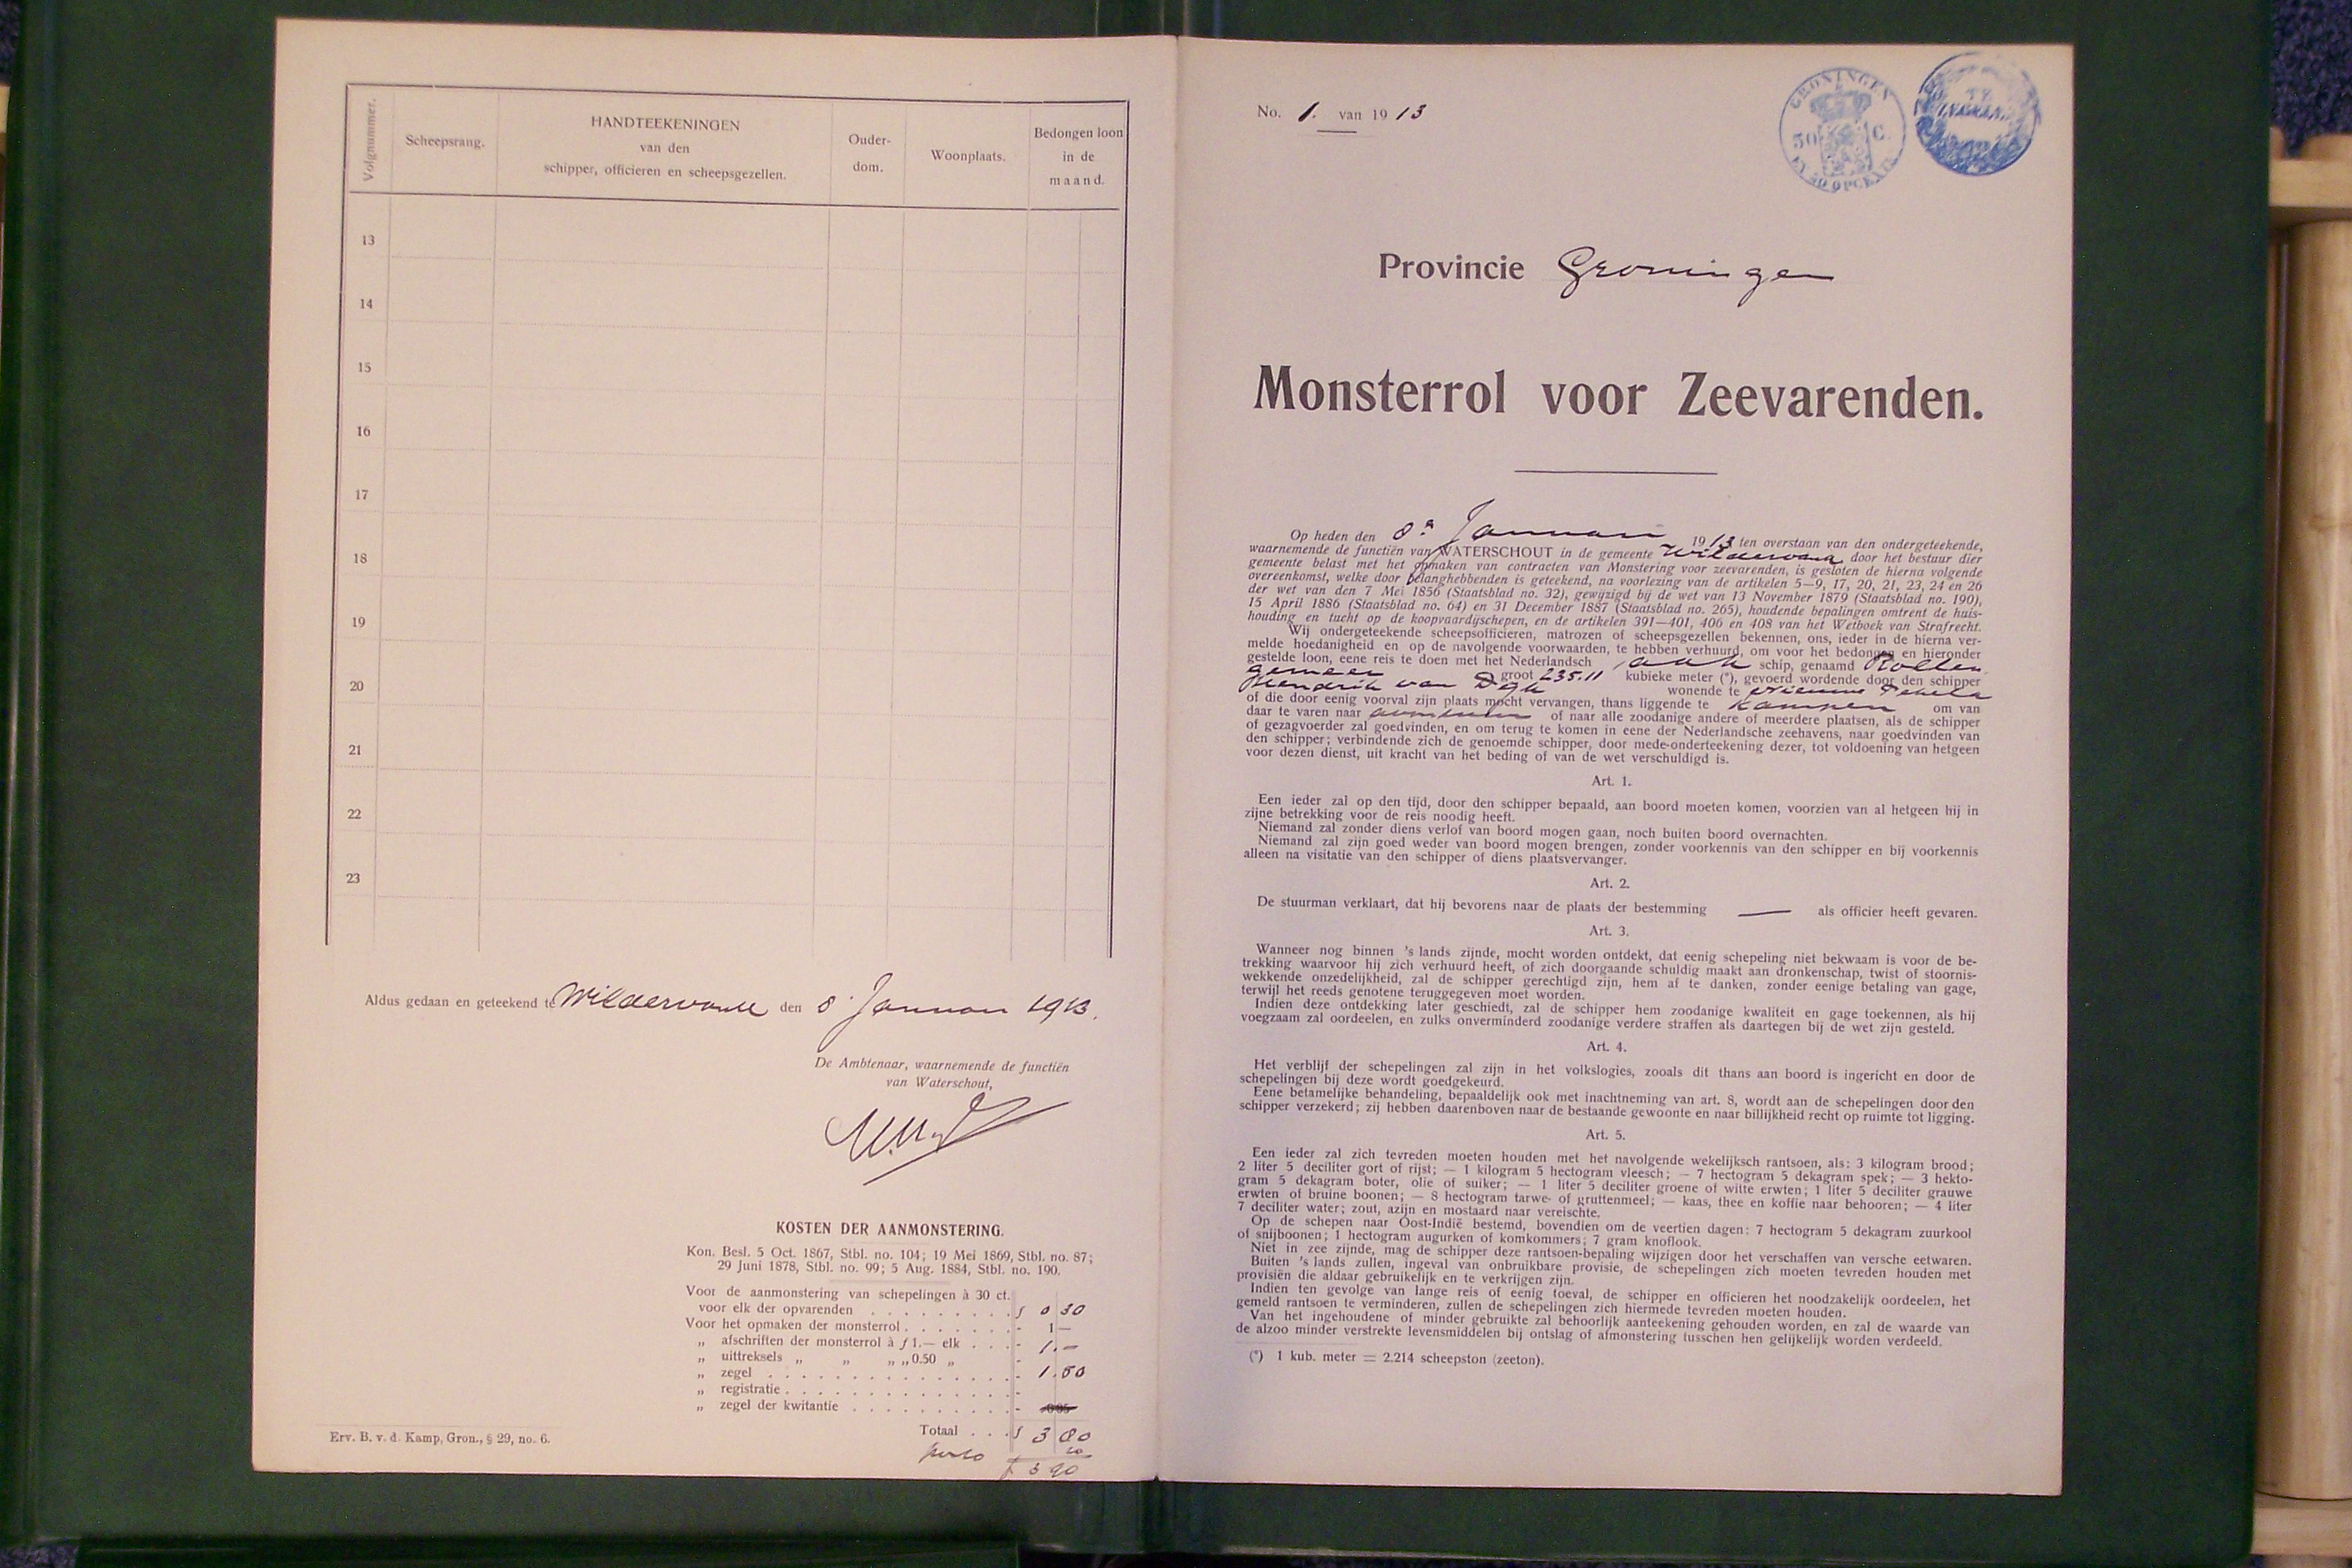 Volgnummer.
Scheepsrang.
HANDTEEKENINGEN
van den
schipper, officieren en scheepsgezellen.
Ouder-
dom.
Woonplaats.
Bedongen loon
in de
maand.
13
14
15
16
17
18
19
20
21
22
23
Aldus gedaan en geteekend te Wildervank den 8 Januari 1913.
De Ambtenaar, waarnemende de functiën
van Waterschout,
KOSTEN DER AANMONSTERING.
Kon. Besl. 5 Oct. 1867, Stbl. no. 104; 19 Mei 1869, Stbl. no. 87;
29 Juni 1878, Stbl. no. 99; 5 Aug. 1884, Stbl. no. 190.
Voor de aanmonstering van schepelingen à 30 ct.
voor elk der opvarenden . . . . . . . . . f 0 30
Voor het opmaken der monsterrol . . . . . . . - 1 —
„ afschriften der monsterrol à f 1.— elk . . . - 1.—
„ uittreksels „ „ „ „ 0.50 „ -
„ zegel . . . . . . . . . . . . . . . - 1.50
„ registratie . . . . . . . . . . . . . -
„ zegel der kwitantie . . . . . . . . . . -
Totaal . . . f 3 80
porto 10
f 3 90
Erv. B. v. d. Kamp, Gron., § 29, no. 6.
No. 1. van 1913
GRONINGEN
50 C.
EN 50 OPCENTEN
Provincie Groningen
Monsterrol voor Zeevarenden.
Op heden den 8n Januari 1913 ten overstaan van den ondergeteekende,
waarnemende de functiën van WATERSCHOUT in de gemeente Wildervank door het bestuur dier
gemeente belast met het opmaken van contracten van Monstering voor zeevarenden, is gesloten de hierna volgende
overeenkomst, welke door belanghebbenden is geteekend, na voorlezing van de artikelen 5—9, 17, 20, 21, 23, 24 en 26
der wet van den 7 Mei 1856 (Staatsblad no. 32), gewijzigd bij de wet van 13 November 1879 (Staatsblad no. 190),
15 April 1886 (Staatsblad no. 64) en 31 December 1887 (Staatsblad no. 265), houdende bepalingen omtrent de huis-
houding en tucht op de koopvaardijschepen, en de artikelen 391—401, 406 en 408 van het Wetboek van Strafrecht.
Wij ondergeteekende scheepsofficieren, matrozen of scheepsgezellen bekennen, ons, ieder in de hierna ver-
melde hoedanigheid en op de navolgende voorwaarden, te hebben verhuurd, om voor het bedongen en hieronder
gestelde loon, eene reis te doen met het Nederlandsch aak schip, genaamd
groot 235.11 kubieke meter (*), gevoerd wordende door den schipper
Hendrik van Dijk wonende te Nieuwe Pekela
of die door eenig voorval zijn plaats mocht vervangen, thans liggende te Kampen om van
daar te varen naar of naar alle zoodanige andere of meerdere plaatsen, als de schipper
of gezagvoerder zal goedvinden, en om terug te komen in eene der Nederlandsche zeehavens, naar goedvinden van
den schipper; verbindende zich de genoemde schipper, door mede-onderteekening dezer, tot voldoening van hetgeen
voor dezen dienst, uit kracht van het beding of van de wet verschuldigd is.
Art. 1.
Een ieder zal op den tijd, door den schipper bepaald, aan boord moeten komen, voorzien van al hetgeen hij in
zijne betrekking voor de reis noodig heeft.
Niemand zal zonder diens verlof van boord mogen gaan, noch buiten boord overnachten.
Niemand zal zijn goed weder van boord mogen brengen, zonder voorkennis van den schipper en bij voorkennis
alleen na visitatie van den schipper of diens plaatsvervanger.
Art. 2.
De stuurman verklaart, dat hij bevorens naar de plaats der bestemming — als officier heeft gevaren.
Art. 3.
Wanneer nog binnen 's lands zijnde, mocht worden ontdekt, dat eenig schepeling niet bekwaam is voor de be-
trekking waarvoor hij zich verhuurd heeft, of zich doorgaande schuldig maakt aan dronkenschap, twist of stoornis-
wekkende onzedelijkheid, zal de schipper gerechtigd zijn, hem af te danken, zonder eenige betaling van gage,
terwijl het reeds genotene teruggegeven moet worden.
Indien deze ontdekking later geschiedt, zal de schipper hem zoodanige kwaliteit en gage toekennen, als hij
voegzaam zal oordeelen, en zulks onverminderd zoodanige verdere straffen als daartegen bij de wet zijn gesteld.
Art. 4.
Het verblijf der schepelingen zal zijn in het volkslogies, zooals dit thans aan boord is ingericht en door de
schepelingen bij deze wordt goedgekeurd.
Eene betamelijke behandeling, bepaaldelijk ook met inachtneming van art. 8, wordt aan de schepelingen door den
schipper verzekerd; zij hebben daarenboven naar de bestaande gewoonte en naar billijkheid recht op ruimte tot ligging.
Art. 5.
Een ieder zal zich tevreden moeten houden met het navolgende wekelijksch rantsoen, als: 3 kilogram brood;
2 liter 5 deciliter gort of rijst; — 1 kilogram 5 hectogram vleesch; — 7 hectogram 5 dekagram spek; — 3 hekto-
gram 5 dekagram boter, olie of suiker; — 1 liter 5 deciliter groene of witte erwten; 1 liter 5 deciliter grauwe
erwten of bruine boonen; — 8 hectogram tarwe- of gruttenmeel; — kaas, thee en koffie naar behooren; — 4 liter
7 deciliter water; zout, azijn en mostaard naar vereischte.
Op de schepen naar Oost-Indië bestemd, bovendien om de veertien dagen: 7 hectogram 5 dekagram zuurkool
of snijboonen; 1 hectogram augurken of komkommers; 7 gram knoflook.
Niet in zee zijnde, mag de schipper deze rantsoen-bepaling wijzigen door het verschaffen van versche eetwaren.
Buiten 's lands zullen, ingeval van onbruikbare provisie, de schepelingen zich moeten tevreden houden met
provisiën die aldaar gebruikelijk en te verkrijgen zijn.
Indien ten gevolge van lange reis of eenig toeval, de schipper en officieren het noodzakelijk oordeelen, het
gemeld rantsoen te verminderen, zullen de schepelingen zich hiermede tevreden moeten houden.
Van het ingehoudene of minder gebruikte zal behoorlijk aanteekening gehouden worden, en zal de waarde van
de alzoo minder verstrekte levensmiddelen bij ontslag of afmonstering tusschen hen gelijkelijk worden verdeeld.
(*) 1 kub. meter = 2.214 scheepston (zeeton).